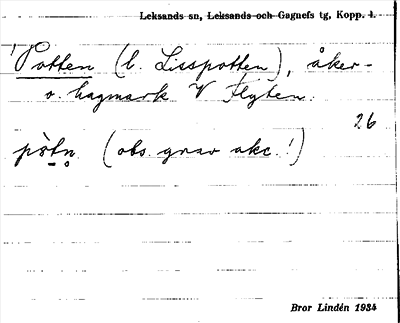 Leksands sn, Leksands och Gagnefs tg, Kopp. l.
Potten (l. Lisspotten), åker-
o. hagmark V Flyten.
26
pòtn̥ (obs. grav akc.!)
Bror Lindén 1934